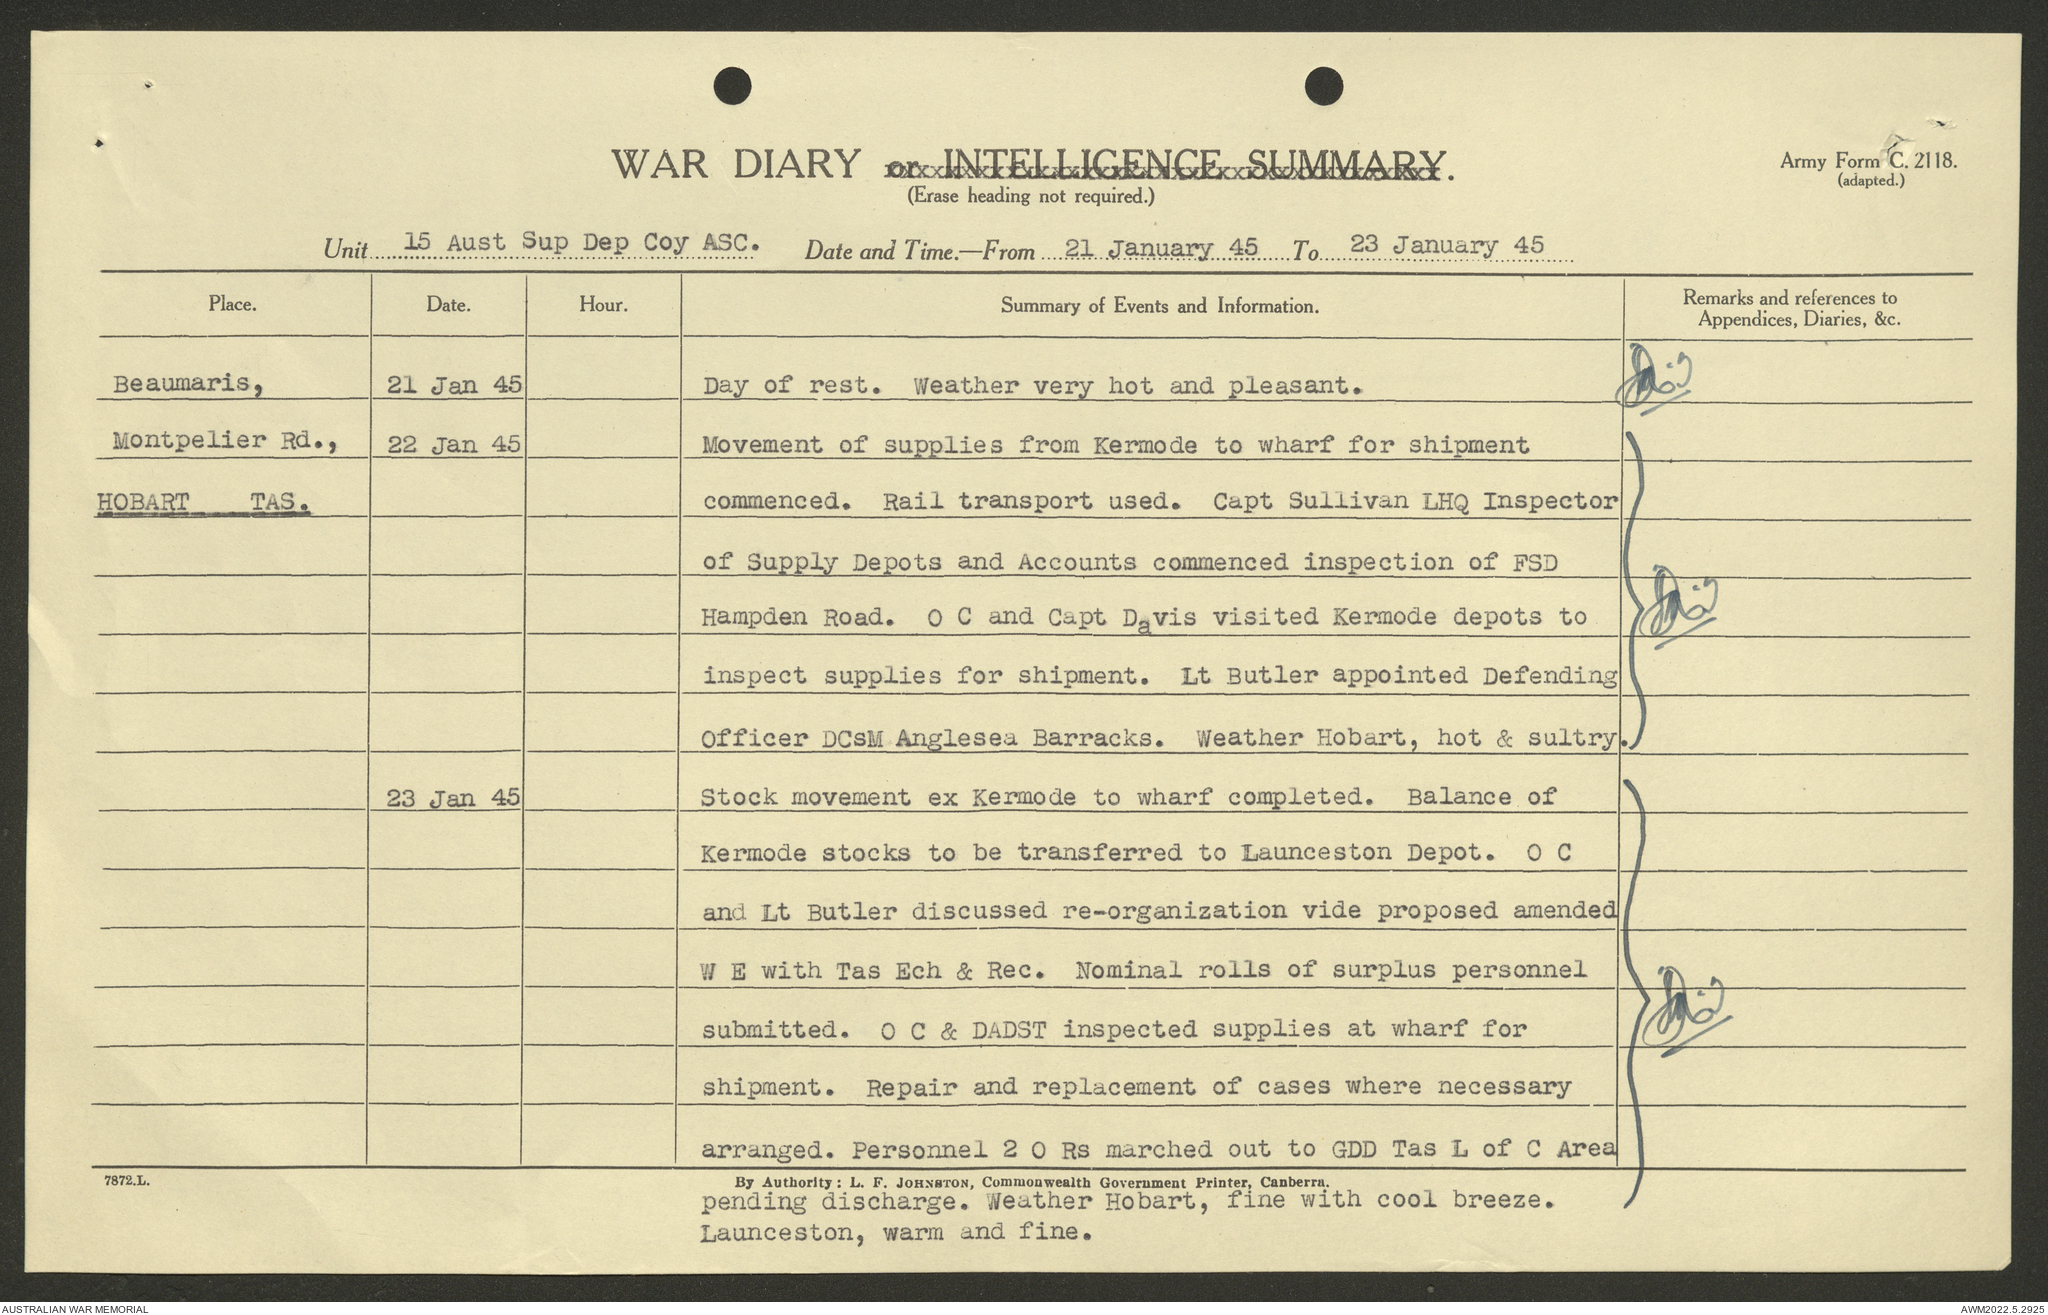 WAR DIARY or INTELLIGENCE SUMMARY.
(Erase heading not required.)
Army Form C. 2118.
(adapted.)
Unit 15 Aust Sup Dep Coy ASC. Date and Time.—From 21 January 45 To 23 January 45
Place. Date. Hour. Summary of Events and Information. Remarks and references to Appendices, Diaries, &c.
Beaumaris, 21 Jan 45 Day of rest. Weather very hot and pleasant.
Montpelier Rd., 22 Jan 45 Movement of supplies from Kermode to wharf for shipment
HOBART TAS. commenced. Rail transport used. Capt Sullivan LHQ Inspector
of Supply Depots and Accounts commenced inspection of FSD
Hampden Road. O C and Capt Davis visited Kermode depots to
inspect supplies for shipment. Lt Butler appointed Defending
Officer DCsM Anglesea Barracks. Weather Hobart, hot & sultry.
23 Jan 45 Stock movement ex Kermode to wharf completed. Balance of
Kermode stocks to be transferred to Launceston Depot. O C
and Lt Butler discussed re-organization vide proposed amended
W E with Tas Ech & Rec. Nominal rolls of surplus personnel
submitted. O C & DADST inspected supplies at wharf for
shipment. Repair and replacement of cases where necessary
arranged. Personnel 2 O Rs marched out to GDD Tas L of C Area
7872.L. By Authority: L. F. JOHNSTON, Commonwealth Government Printer, Canberra.
pending discharge. Weather Hobart, fine with cool breeze.
Launceston, warm and fine.
AUSTRALIAN WAR MEMORIAL AWM2022.5.2925